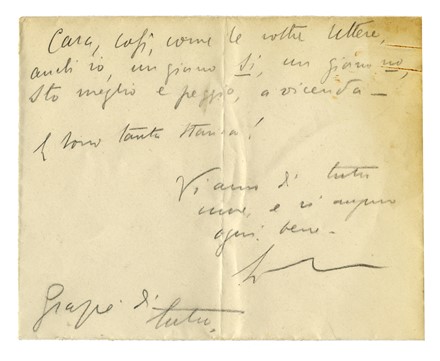 Cara, così, come le vostre lettere,
anch'io, un giorno sì, un giorno no,
sto meglio e peggio, a vicenda –
E sono tanto stanca!
Vi amo di tutto
cuore, e vi auguro
ogni bene –
Grazie di tutto.